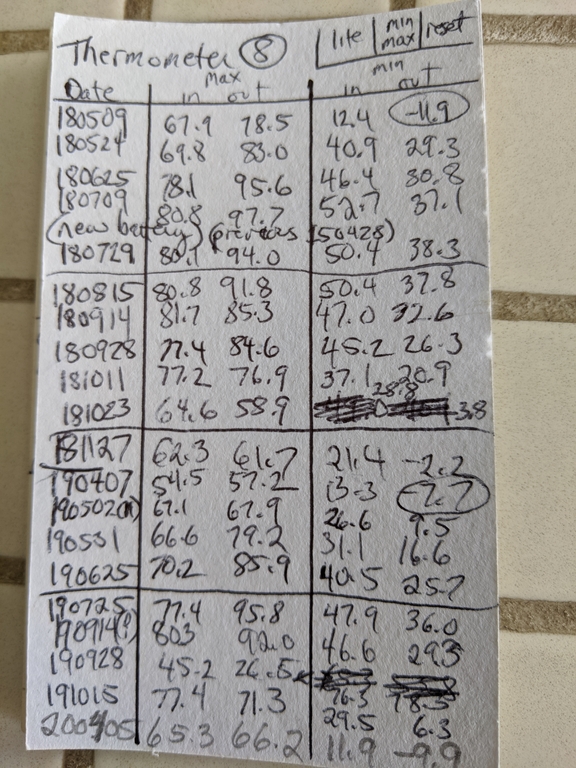 Thermometer 8 lite min max reset
max min
Date in out in out
180509 67.9 78.5 12.4 -11.9
180524 69.8 83.0 40.9 29.3
180625 78.1 95.6 46.4 30.8
180709 80.8 97.7 52.7 37.1
(new battery) (previous 150428)
180729 80.1 94.0 50.4 38.3
180815 80.8 91.8 50.4 37.8
180914 81.7 85.3 47.0 32.6
180928 77.4 84.6 45.2 26.3
181011 77.2 76.9 37.1 20.9
181023 64.6 58.9 28.8 13.8
181127 62.3 61.7 21.4 -2.2
190407 54.5 57.2 13.3 -7.7
190502(n) 67.1 67.9 26.6 9.5
190531 66.6 79.2 31.1 16.6
190625 70.2 85.9 40.5 25.7
190725 77.4 95.8 47.9 36.0
190914(?) 803 92.0 46.6 293
190928 45.2 26.5
191015 77.4 71.3 26.3 18.5
200405 65.3 66.2 29.5 6.3
11.9 -9.9